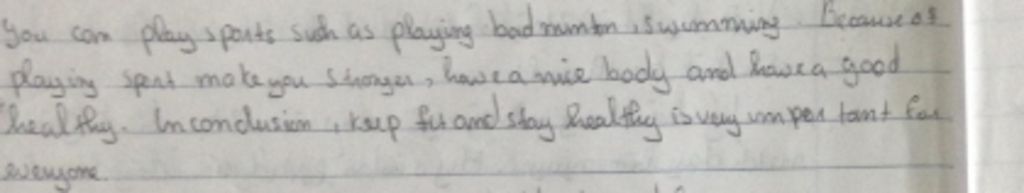 You can play sports such as playing badminton, swimming. Because of
playing sport make you stronger, have a nice body and have a good
healthy. In conclusion, keep fit and stay healthy is very important for
everyone.